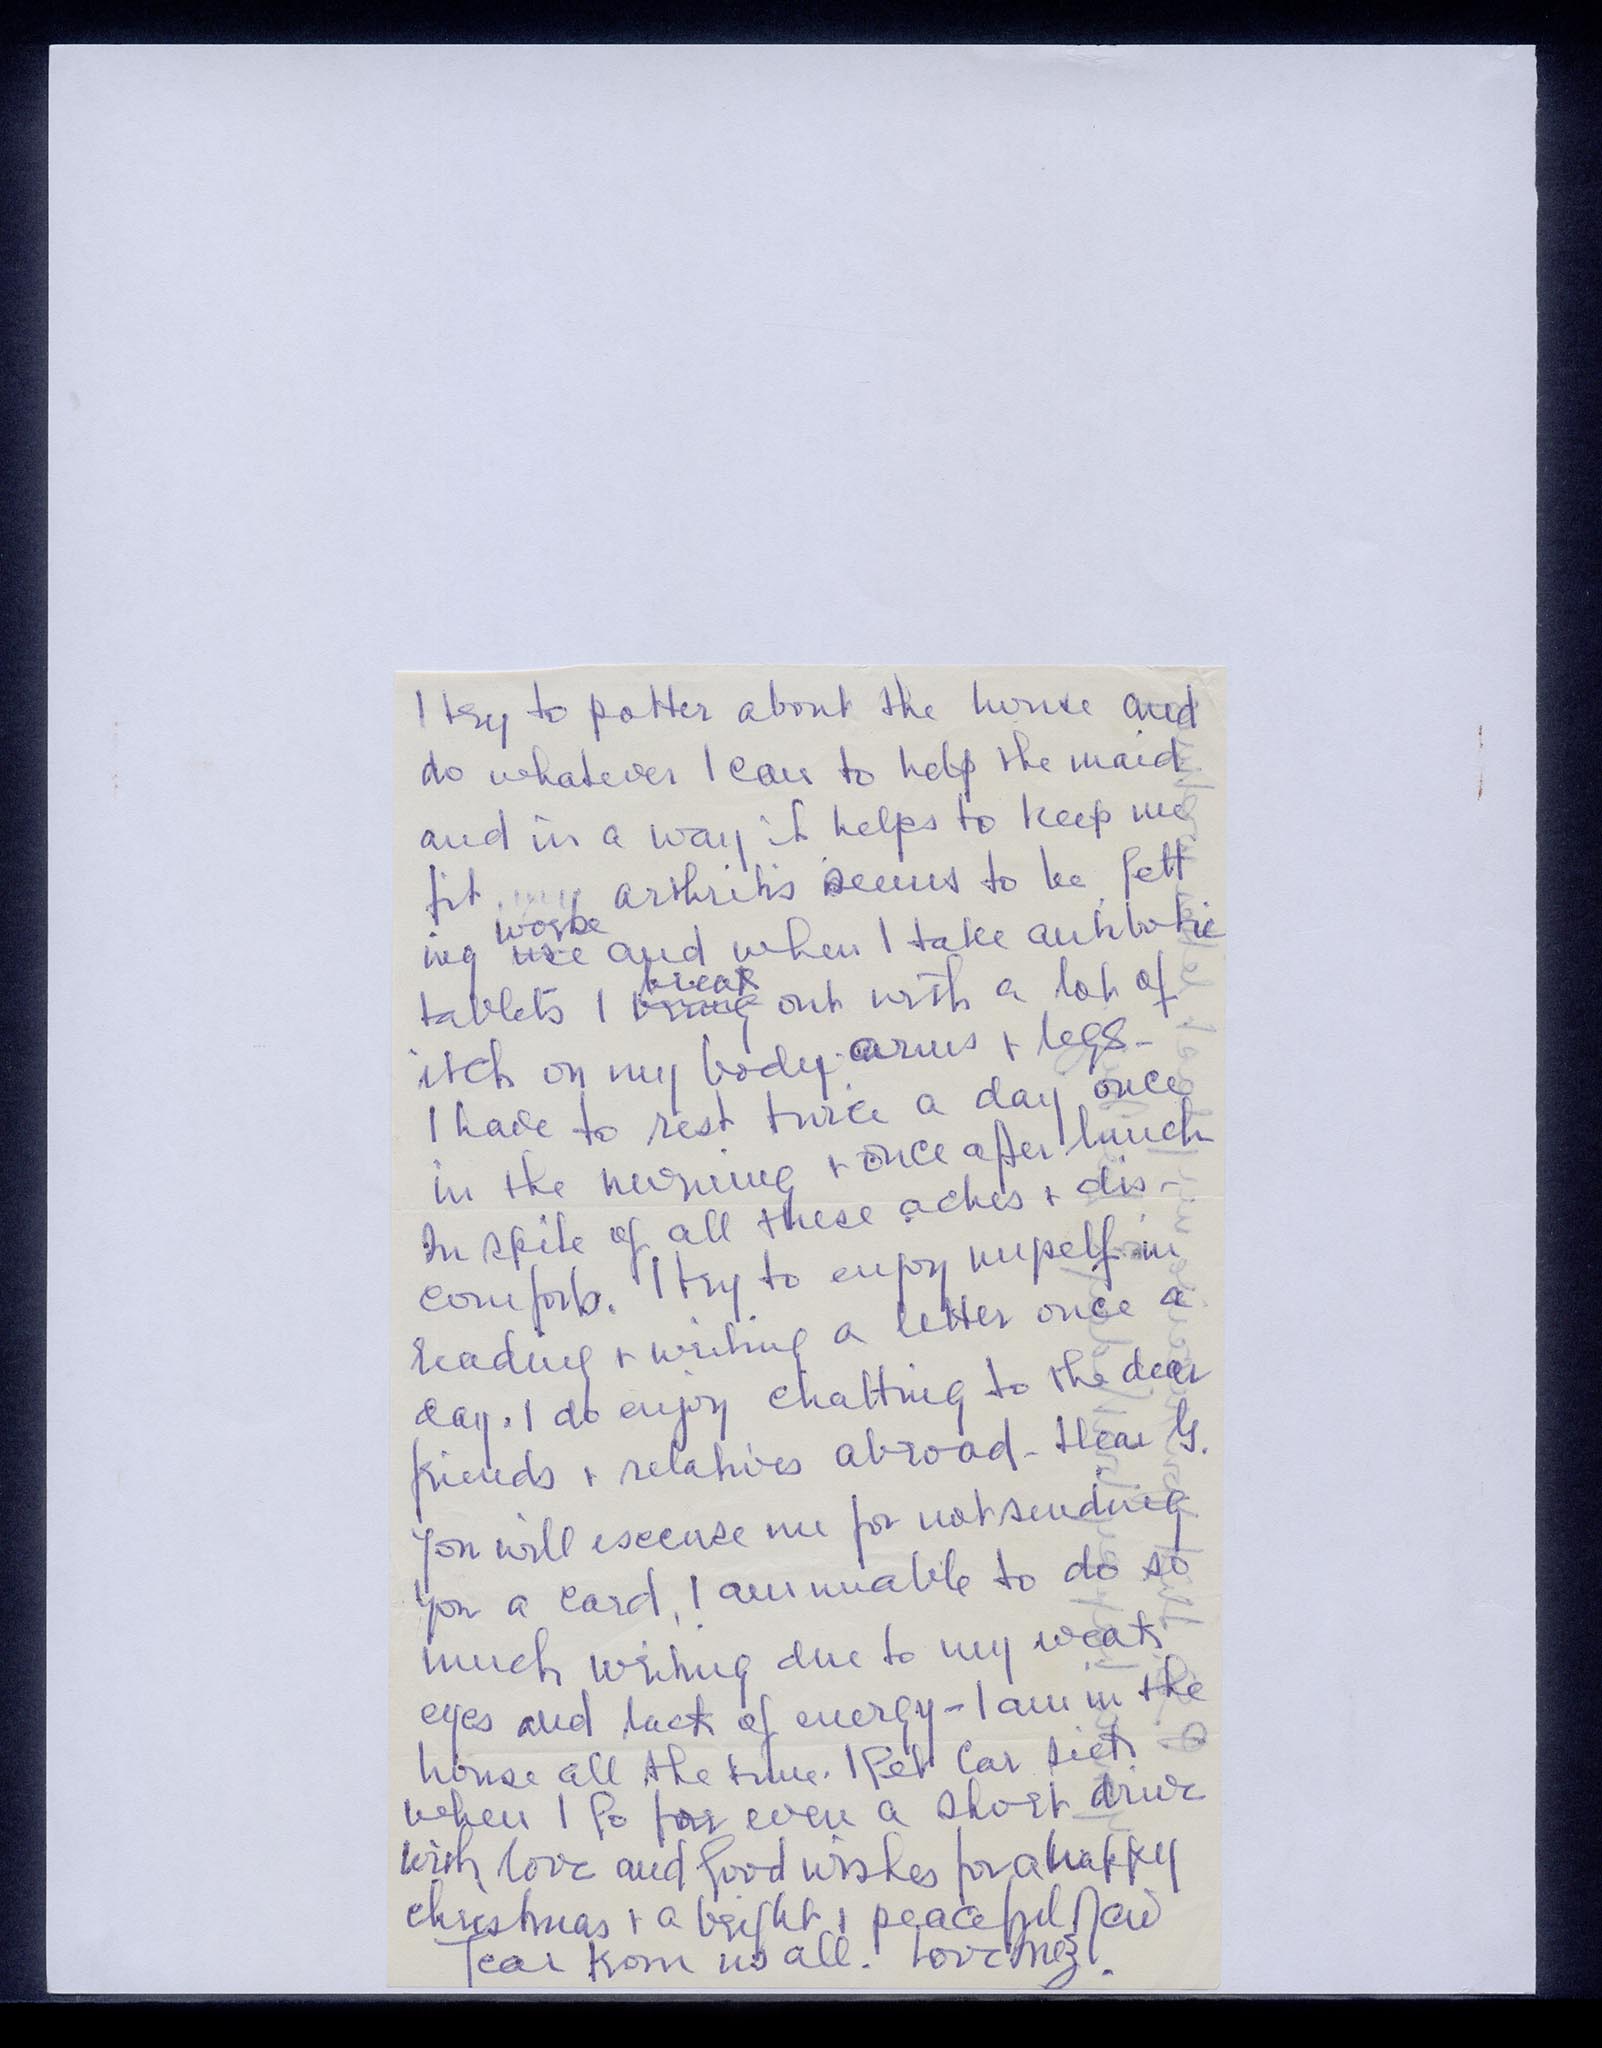 I try to potter about the house and
do whatever I can to help the maid
and in a way it helps to keep me
fit. my arthritis seems to be gett
ing worse and when I take antibiotic
tablets I break out with a lot of
itch on my body. arms + legs-
I have to rest twice a day once
in the morning + once after lunch
In spite of all these aches + dis-
comforts. I try to enjoy myself in
reading + writing a letter once a
day. I do enjoy chatting to the dear
friends + relatives abroad- Dear G.
you will excuse me for not sending
you a card, I am unable to do so
much writing due to my weak
eyes and lack of energy- I am in the
house all the time. I get car sick
when I go for even a short drive
with love and good wishes for a happy
christmas + a bright + peaceful New
Year from us all. Love